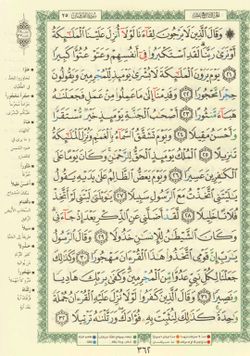 وَقَالَ الَّذِينَ لَا يَرْجُونَ لِقَاءَنَا لَوْلَا أُنزِلَ عَلَيْنَا الْمَلَائِكَةُ
أَوْ نَرَىٰ رَبَّنَا لَقَدِ اسْتَكْبَرُوا فِي أَنفُسِهِمْ وَعَتَوْ عُتُوًّا كَبِيرًا
٢١ يَوْمَ يَرَوْنَ الْمَلَائِكَةَ لَا بُشْرَىٰ يَوْمَئِذٍ لِّلْمُجْرِمِينَ وَيَقُولُونَ
حِجْرًا مَّحْجُورًا ٢٢ وَقَدِمْنَا إِلَىٰ مَا عَمِلُوا مِنْ عَمَلٍ فَجَعَلْنَاهُ
هَبَاءً مَّنثُورًا ٢٣ أَصْحَابُ الْجَنَّةِ يَوْمَئِذٍ خَيْرٌ مُّسْتَقَرًّا
وَأَحْسَنُ مَقِيلًا ٢٤ وَيَوْمَ تَشَقَّقُ السَّمَاءُ بِالْغَمَامِ وَنُزِّلَ الْمَلَائِكَةُ
تَنزِيلًا ٢٥ الْمُلْكُ يَوْمَئِذٍ الْحَقُّ لِلرَّحْمَٰنِ وَكَانَ يَوْمًا عَلَى
الْكَافِرِينَ عَسِيرًا ٢٦ وَيَوْمَ يَعَضُّ الظَّالِمُ عَلَىٰ يَدَيْهِ يَقُولُ
يَا لَيْتَنِي اتَّخَذْتُ مَعَ الرَّسُولِ سَبِيلًا ٢٧ يَا وَيْلَتَىٰ لَيْتَنِي لَمْ أَتَّخِذْ
فُلَانًا خَلِيلًا ٢٨ لَّقَدْ أَضَلَّنِي عَنِ الذِّكْرِ بَعْدَ إِذْ جَاءَنِي
وَكَانَ الشَّيْطَانُ لِلْإِنسَانِ خَذُولًا ٢٩ وَقَالَ الرَّسُولُ
يَا رَبِّ إِنَّ قَوْمِي اتَّخَذُوا هَٰذَا الْقُرْآنَ مَهْجُورًا ٣٠ وَكَذَٰلِكَ
جَعَلْنَا لِكُلِّ نَبِيٍّ عَدُوًّا مِّنَ الْمُجْرِمِينَ وَكَفَىٰ بِرَبِّكَ هَادِيًا
وَنَصِيرًا ٣١ وَقَالَ الَّذِينَ كَفَرُوا لَوْلَا نُزِّلَ عَلَيْهِ الْقُرْآنُ جُمْلَةً
وَاحِدَةً كَذَٰلِكَ لِنُثَبِّتَ بِهِ فُؤَادَكَ وَرَتَّلْنَاهُ تَرْتِيلًا ٣٢
٣٦٢